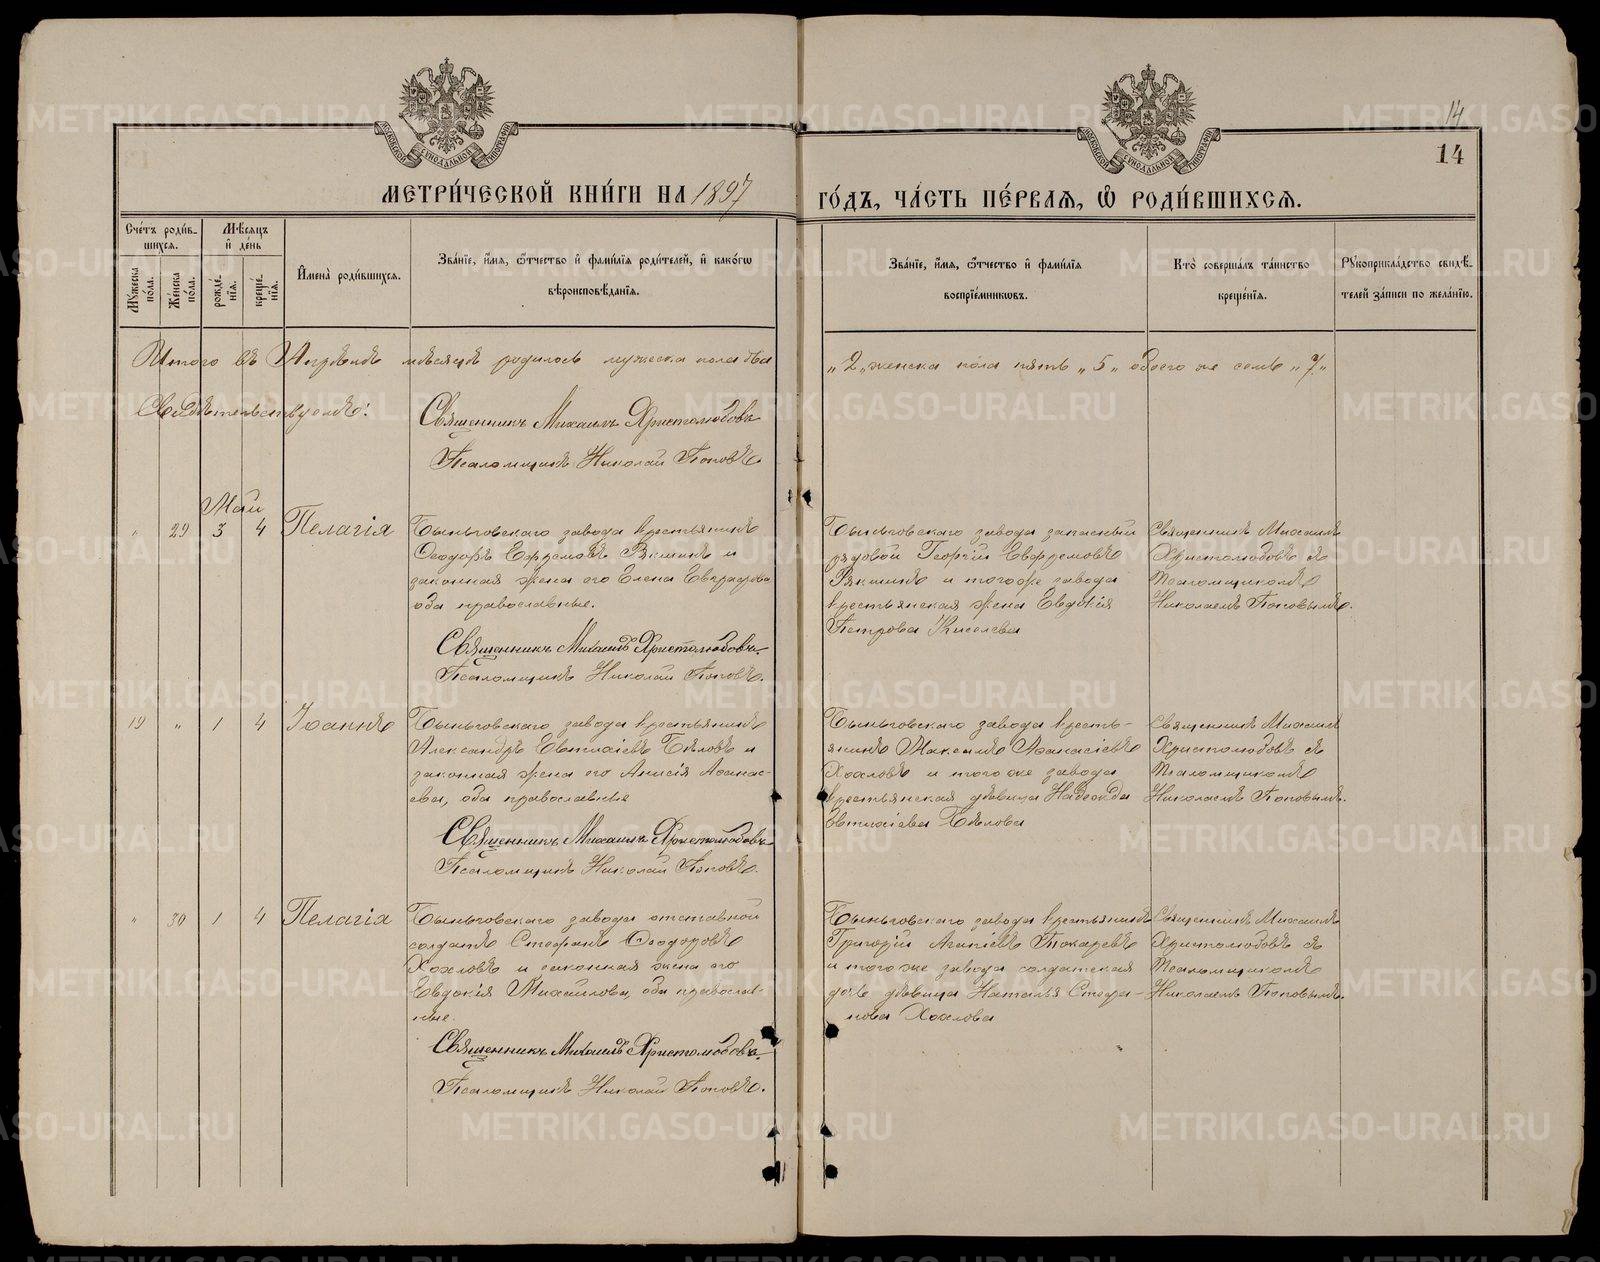 14
14
МЕТРИ́ЧЕСКОЙ КНИ́ГИ НА 1897 ГО́ДЪ, ЧА́СТЬ ПЕ́РВАЯ, Ѡ РОДИ́ВШИХСЯ.
Сче́тъ роди́в-
шихся.
Мꙋ́жеска по́ла.
Же́нска по́ла.
Мѣ́сяцъ
и҆ де́нь
рожде́-
нїя.
креще́-
нїя.
И҆мена̀ роди́вшихся.
Зва́нїе, и҆́мя, ѻ҆́тчество и҆ фами́лїя роди́телей, и҆ како́гѡ
вѣроисповѣ́данїя.
Зва́нїе, и҆́мя, ѻ҆́тчество и҆ фами́лїя
воспрїе́мниковъ.
Кто̀ соверша́лъ та́инство
креще́нїя.
Рꙋкоприкла́дство свидѣ́-
телей за́писи по жела́нїю.
Итого въ Апрѣлѣ мѣсяцѣ родилось мужеска пола два „2„ женска пола пять „5„ обоего же семь „7„
Свидѣтельствуемъ:
Священникъ Михаилъ Христолюбовъ
Псаломщикъ Николай Поповъ.
Май
„ 29 3 4 Пелагія
Быньговскаго завода крестьянинъ
Ѳеодоръ Ефремовъ Рякшинъ и
законная жена его Елена Евграфова
оба православные.
Священникъ Михаилъ Христолюбовъ
Псаломщикъ Николай Поповъ.
Быньговскаго завода запасный
рядовой Георгій Евфремовъ
Рякшинъ и того же завода
крестьянская жена Евдокія
Петрова Киселева
Священникъ Михаилъ
Христолюбовъ съ
Псаломщикомъ
Николаемъ Поповымъ.
19 „ 1 4 Іоаннъ
Быньговскаго завода крестьянинъ
Александръ Евтихіевъ Бѣловъ и
законная жена его Анисія Аѳанас-
ева, оба православные
Священникъ Михаилъ Христолюбовъ
Псаломщикъ Николай Поповъ.
Быньговскаго завода кресть-
янинъ Максимъ Аѳанасіевъ
Хохловъ и того же завода
крестьянская дѣвица Надежда
Евтихіева Бѣлова
Священникъ Михаилъ
Христолюбовъ съ
Псаломщикомъ
Николаемъ Поповымъ.
„ 30 1 4 Пелагія
Быньговскаго завода отставной
солдатъ Стефанъ Ѳеодоровъ
Хохловъ и законная жена его
Евдокія Михайлова, оба православ-
ные.
Священникъ Михаилъ Христолюбовъ
Псаломщикъ Николай Поповъ.
Быньговскаго завода крестьянинъ
Григорій Агапіевъ Токаревъ
и того же завода солдатская
дочь дѣвица Наталья Стефа-
нова Хохлова
Священникъ Михаилъ
Христолюбовъ съ
Псаломщикомъ
Николаемъ Поповымъ.
METRIKI.GASO-URAL.RU